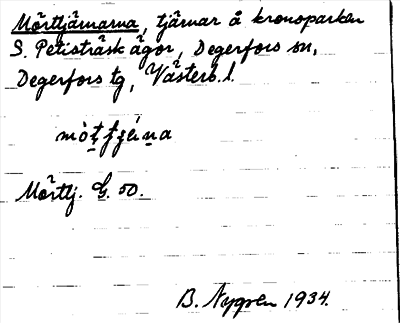 Mörttjärnarna, tjärnar å kronoparken
S. Petisträsk ägor, Degerfors sn,
Degerfors tg, Västerb. l.
Mörttj. G. 50.
B. Nygren 1934.